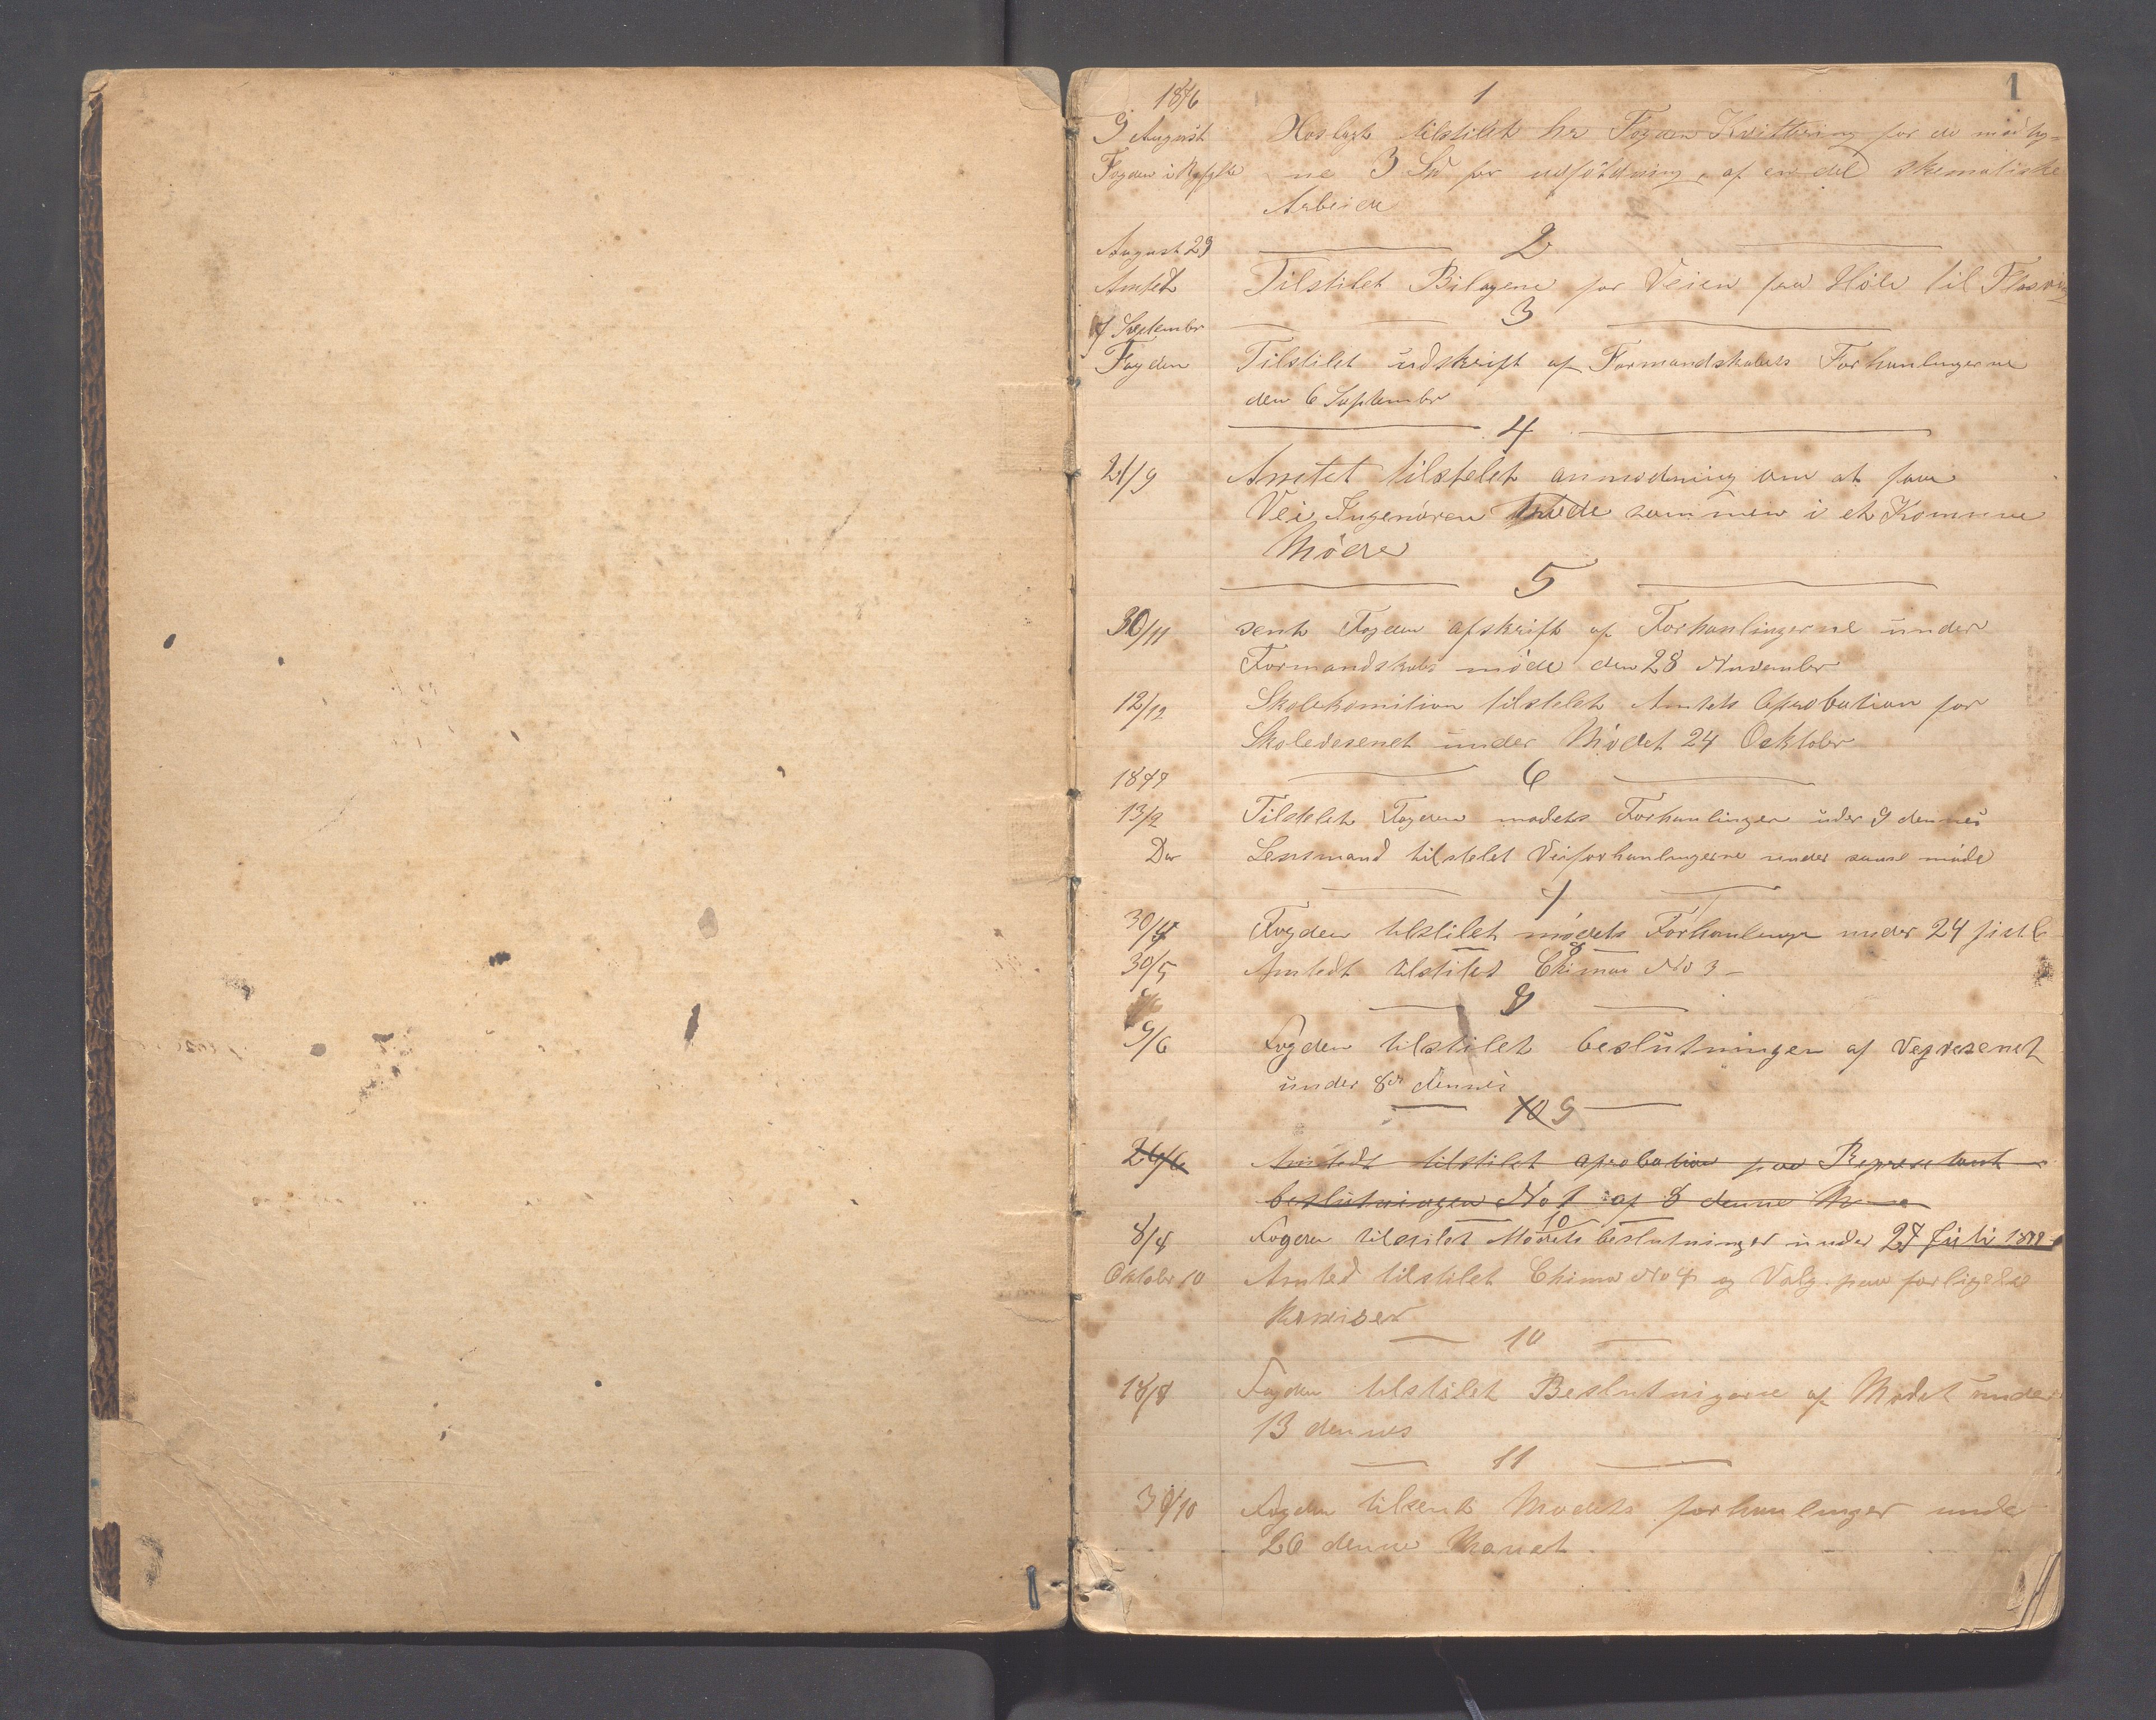 1
1876
1
9 August Hoslagt tilstilet hr Fogden Kvittering for de modtag=
Fogden i Ryfylke ne 3 Sp for udføldning, af en del skematiske
Arbeide
August 29 2
Amtet Tilstilet Bilagene for Veien fra Høle til
7 September 3
Fogden Tilstilet udskrift af Formandskabets Forhanlingerne
den 6 September
4
21/9 Amtet tilstelet anmodning om at faa
Vei Ingeniøren tilstede sammen i et Komune
Møde
5
30/11 sent Fogden afskrift af Forhanlingerne under
Formandskabs møde den 28 November
12/12 Skolekomition tilstelet Amtets Aprobation for
Skolevesenet under Mødet 24 Ocktober
1877 6
13/2 Tilstelet Fogden mødets Forhanlinger uder 9 dennes
Do Lensmand tilstelet Veiforhanlingerne under same møde
7
30/4 Fogden tilstilet mødets Forhanlinger under 24
8
30/5 Amtedt tilstilet No 3
9
9/6 Fogden tilstilet beslutningen af Vegvesenet
under 8de dennes
10 9
26/6 Amtedt tilstilet aprobation paa Represetant
beslutningen No 1 af 8 denne
10
8/8 Fogden tilstilet Mødets beslutninger under 27 Juli 1877
Oktober 10 Amted tilstilet No 4 og Valg paa forligelse
10
18/8 Fogden tilstilet Beslutnigerne af Mødet under
13 dennes
11
30/10 Fogden tilsent Modets forhanlinger under
26 denne Maanet